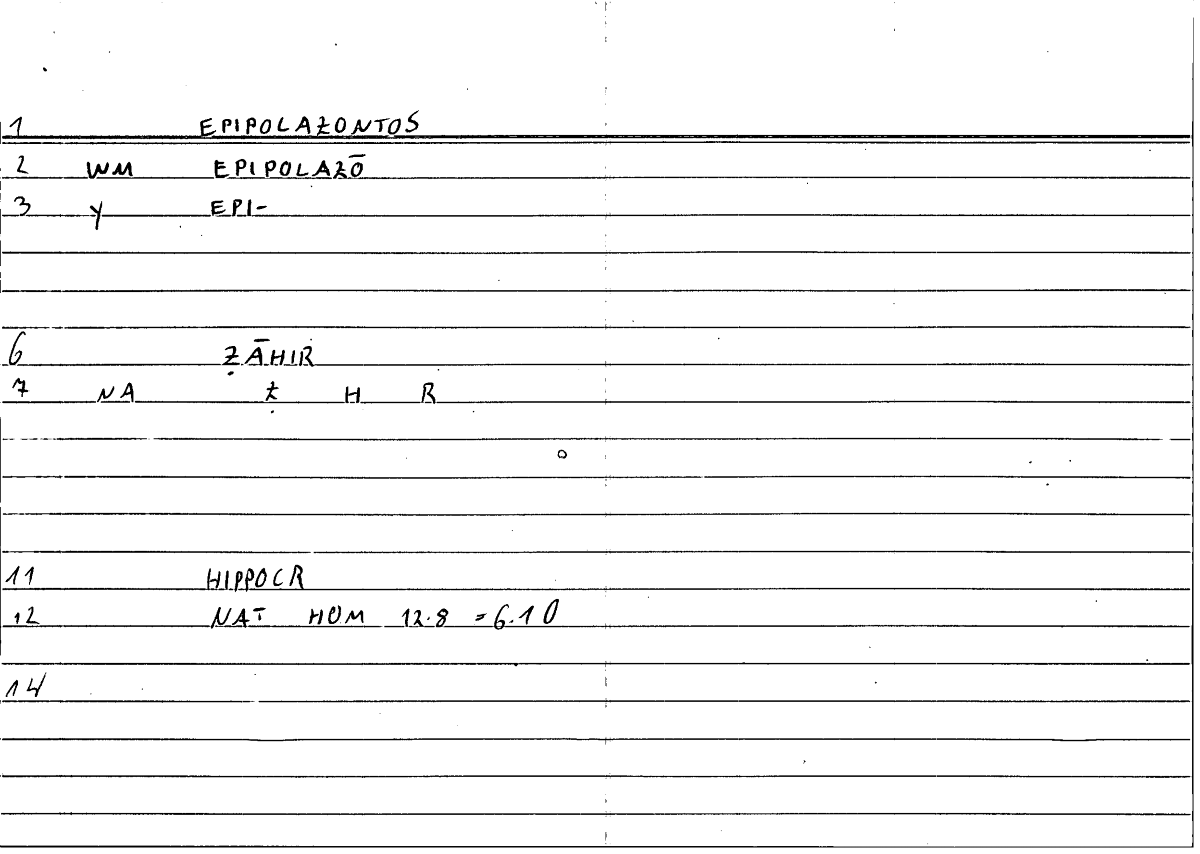 1 EPIPOLAZONTOS
2 WM EPIPOLAZŌ
3 Y EPI-
6 ẒĀHIR
7 NA Ẓ H R
11 HIPPOCR
12 NAT HOM 12.8 = 6.10
14